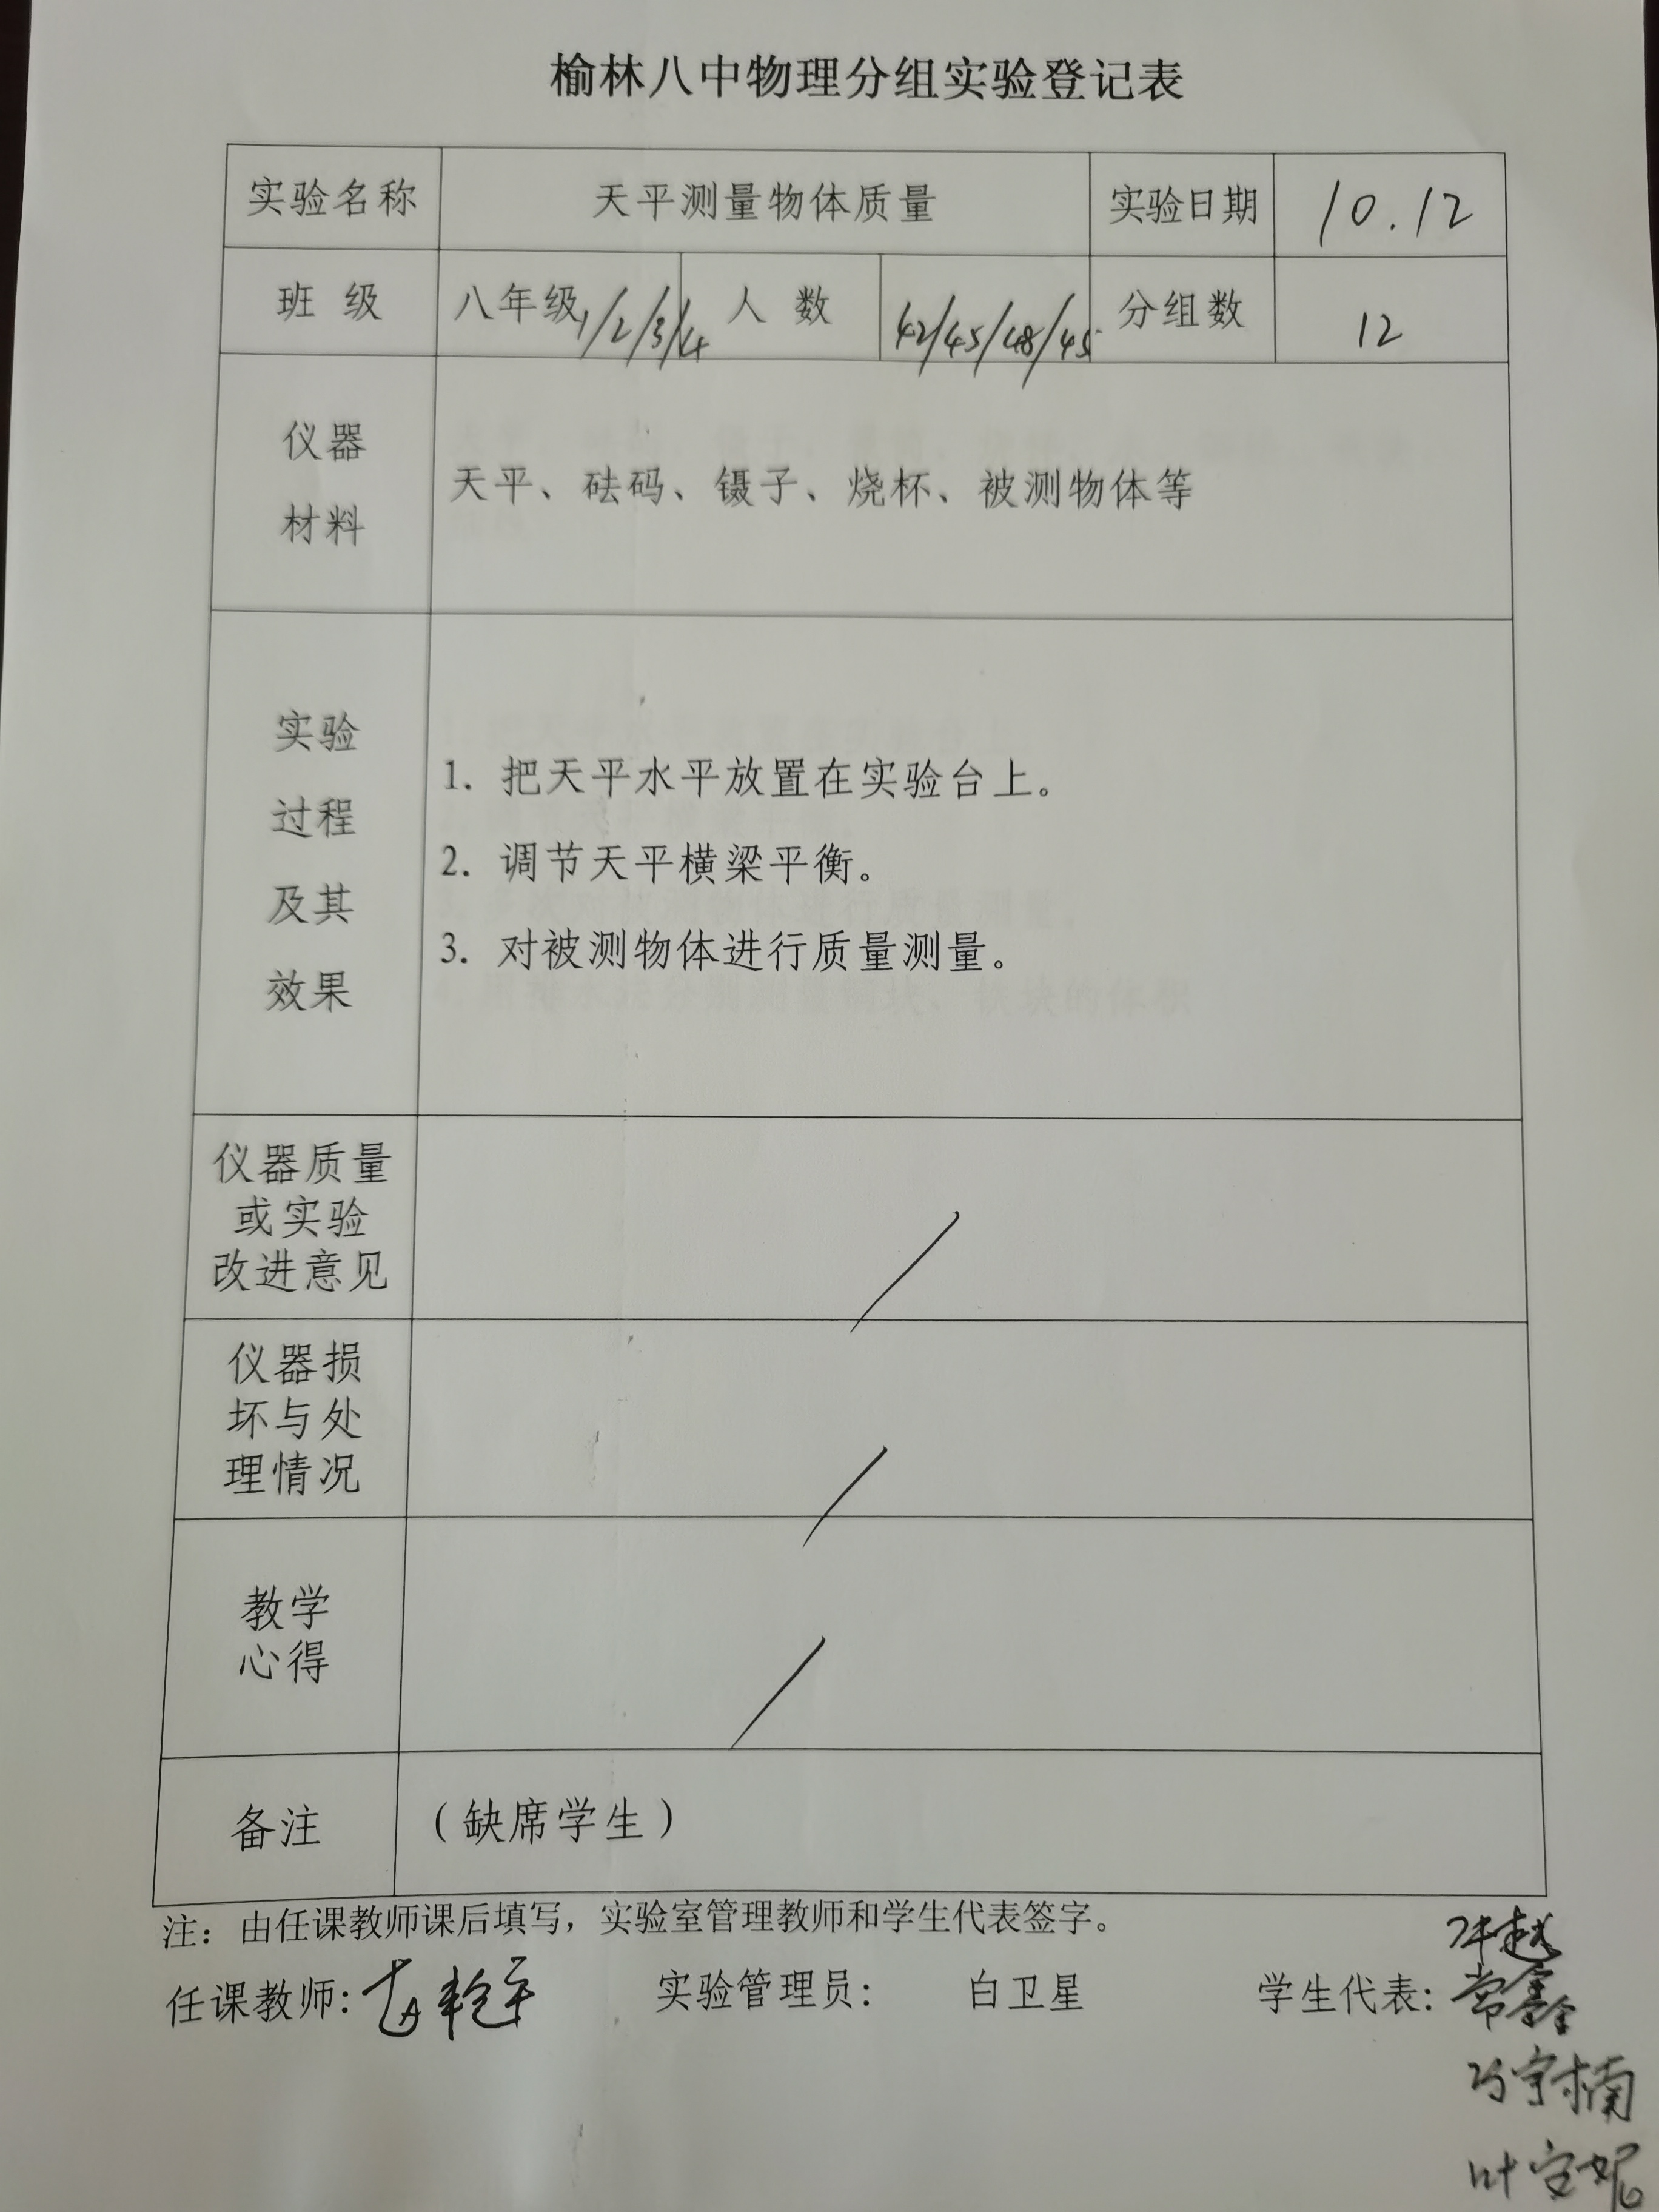 榆林八中物理分组实验登记表
实验名称 天平测量物体质量 实验日期 10.12
班 级 八年级1/2/3/4 人 数 42/45/48/45 分组数 12
仪器
材料
天平、砝码、镊子、烧杯、被测物体等
实验
过程
及其
效果
1. 把天平水平放置在实验台上。
2. 调节天平横梁平衡。
3. 对被测物体进行质量测量。
仪器质量
或实验
改进意见
/
仪器损
坏与处
理情况
/
教学
心得
/
备注 (缺席学生)
注：由任课教师课后填写，实验室管理教师和学生代表签字。
任课教师: 实验管理员: 白卫星 学生代表: 常鑫
宇楠
叶安妮